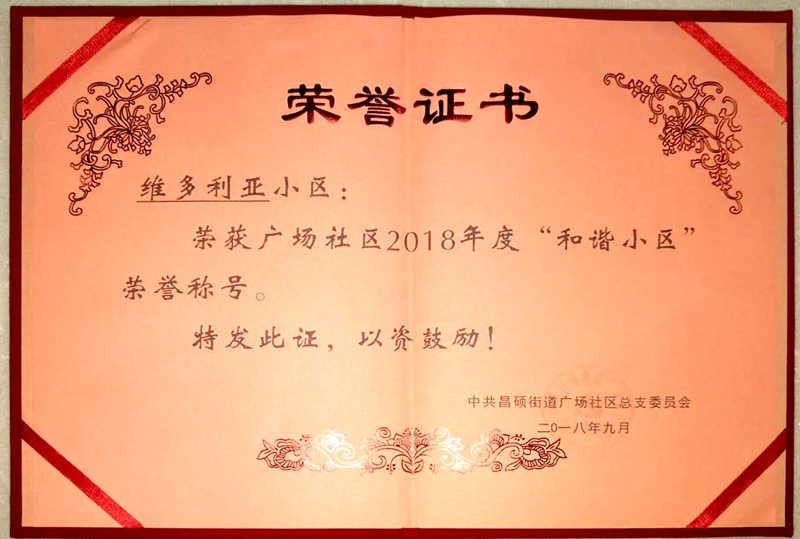 荣誉证书
维多利亚小区：
荣获广场社区2018年度“和谐小区”
荣誉称号。
特发此证，以资鼓励！
中共昌硕街道广场社区总支委员会
二〇一八年九月